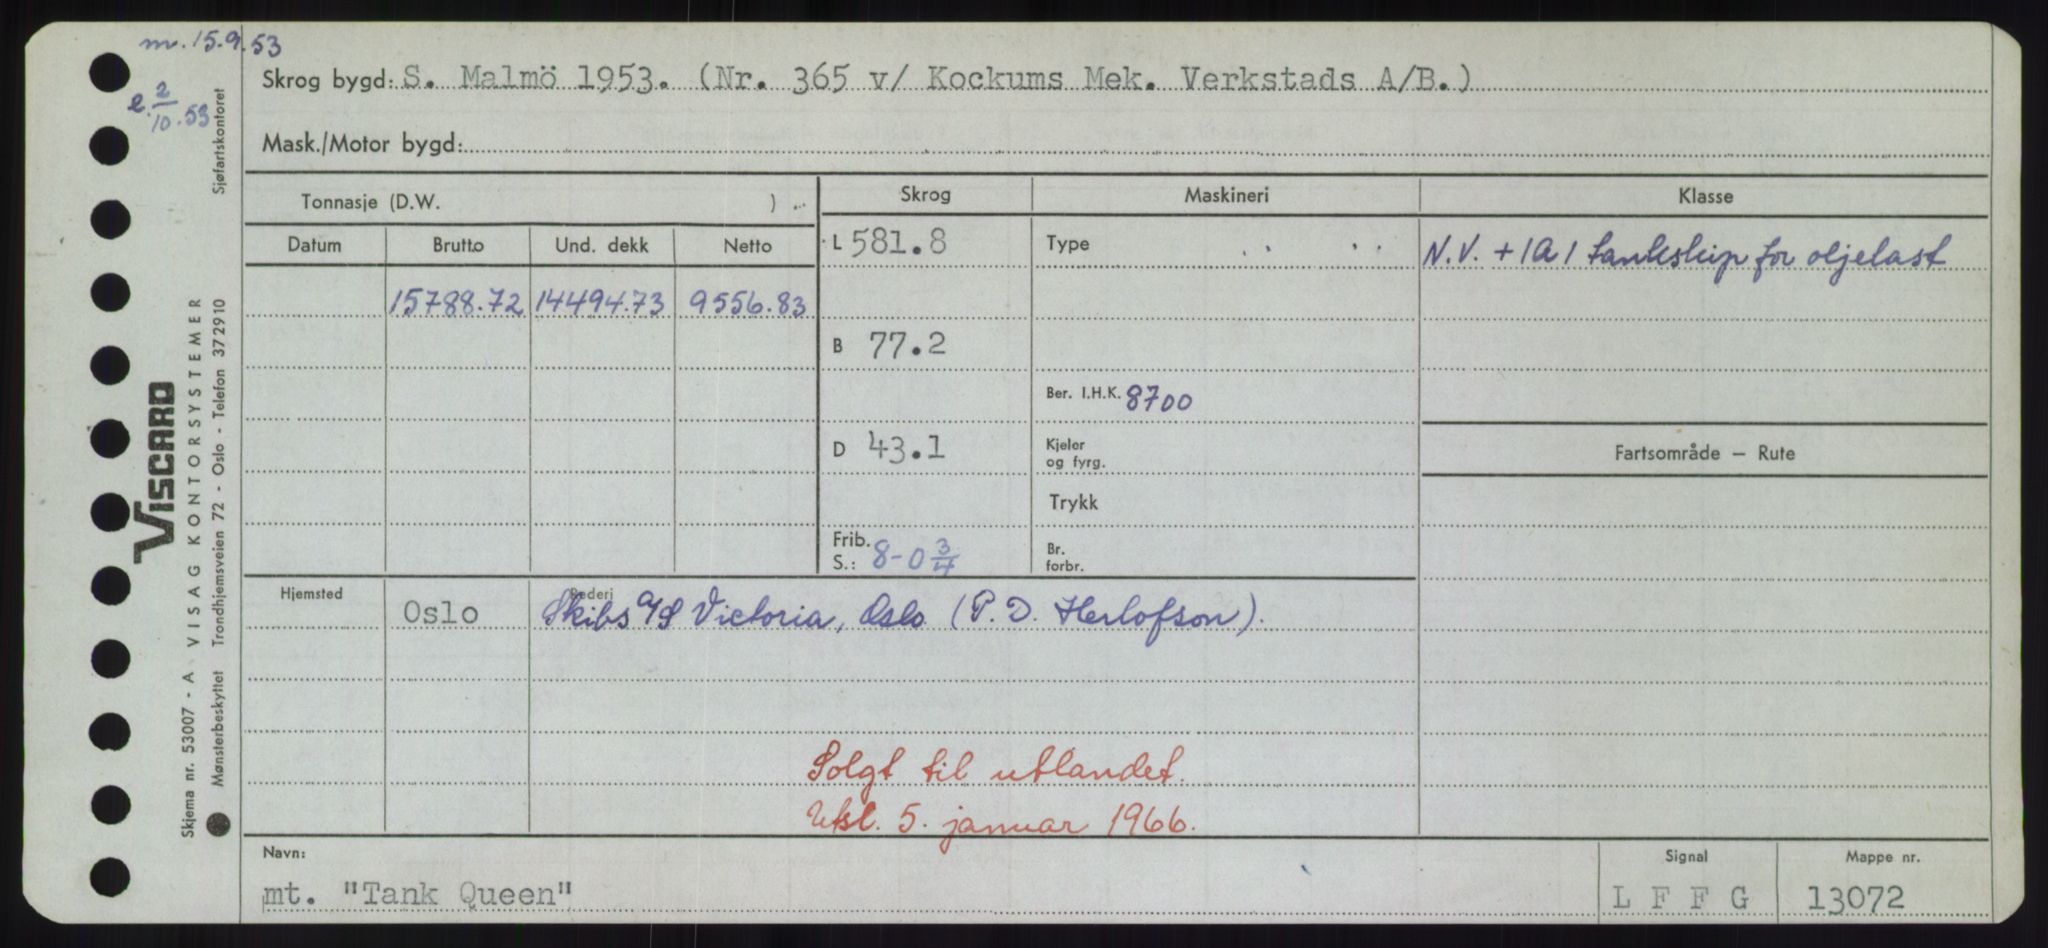 m. 15.9.53
e. 2/10.53
Skrog bygd: S. Malmö 1953. (Nr. 365 v/ Kockums Mek. Verkstads A/B.)
Mask./Motor bygd:
Tonnasje (D.W. )
Skrog Maskineri Klasse
Datum Brutto Und. dekk Netto
L 581.8 Type N.V. + 1A1 tankskip for oljelast
15788.72 14494.73 9556.83
B 77.2
Ber. I.H.K. 8700
D 43.1 Kjeler
og fyrg.
Fartsområde – Rute
Trykk
Frib.
S.: 8-0 3/4
Br.
forbr.
Hjemsted Rederi
Oslo Skibs A/S Victoria, Oslo (P. D. Herlofson).
Solgt til utlandet.
Utsl. 5. januar 1966.
Navn: Signal Mappe nr.
mt. "Tank Queen" L F F G 13072
VISCARD
Skjema nr. 53007 - A VISAG KONTORSYSTEMER
Mønsterbeskyttet Trondhjemsveien 72 - Oslo - Telefon 372910 Sjøfartskontoret